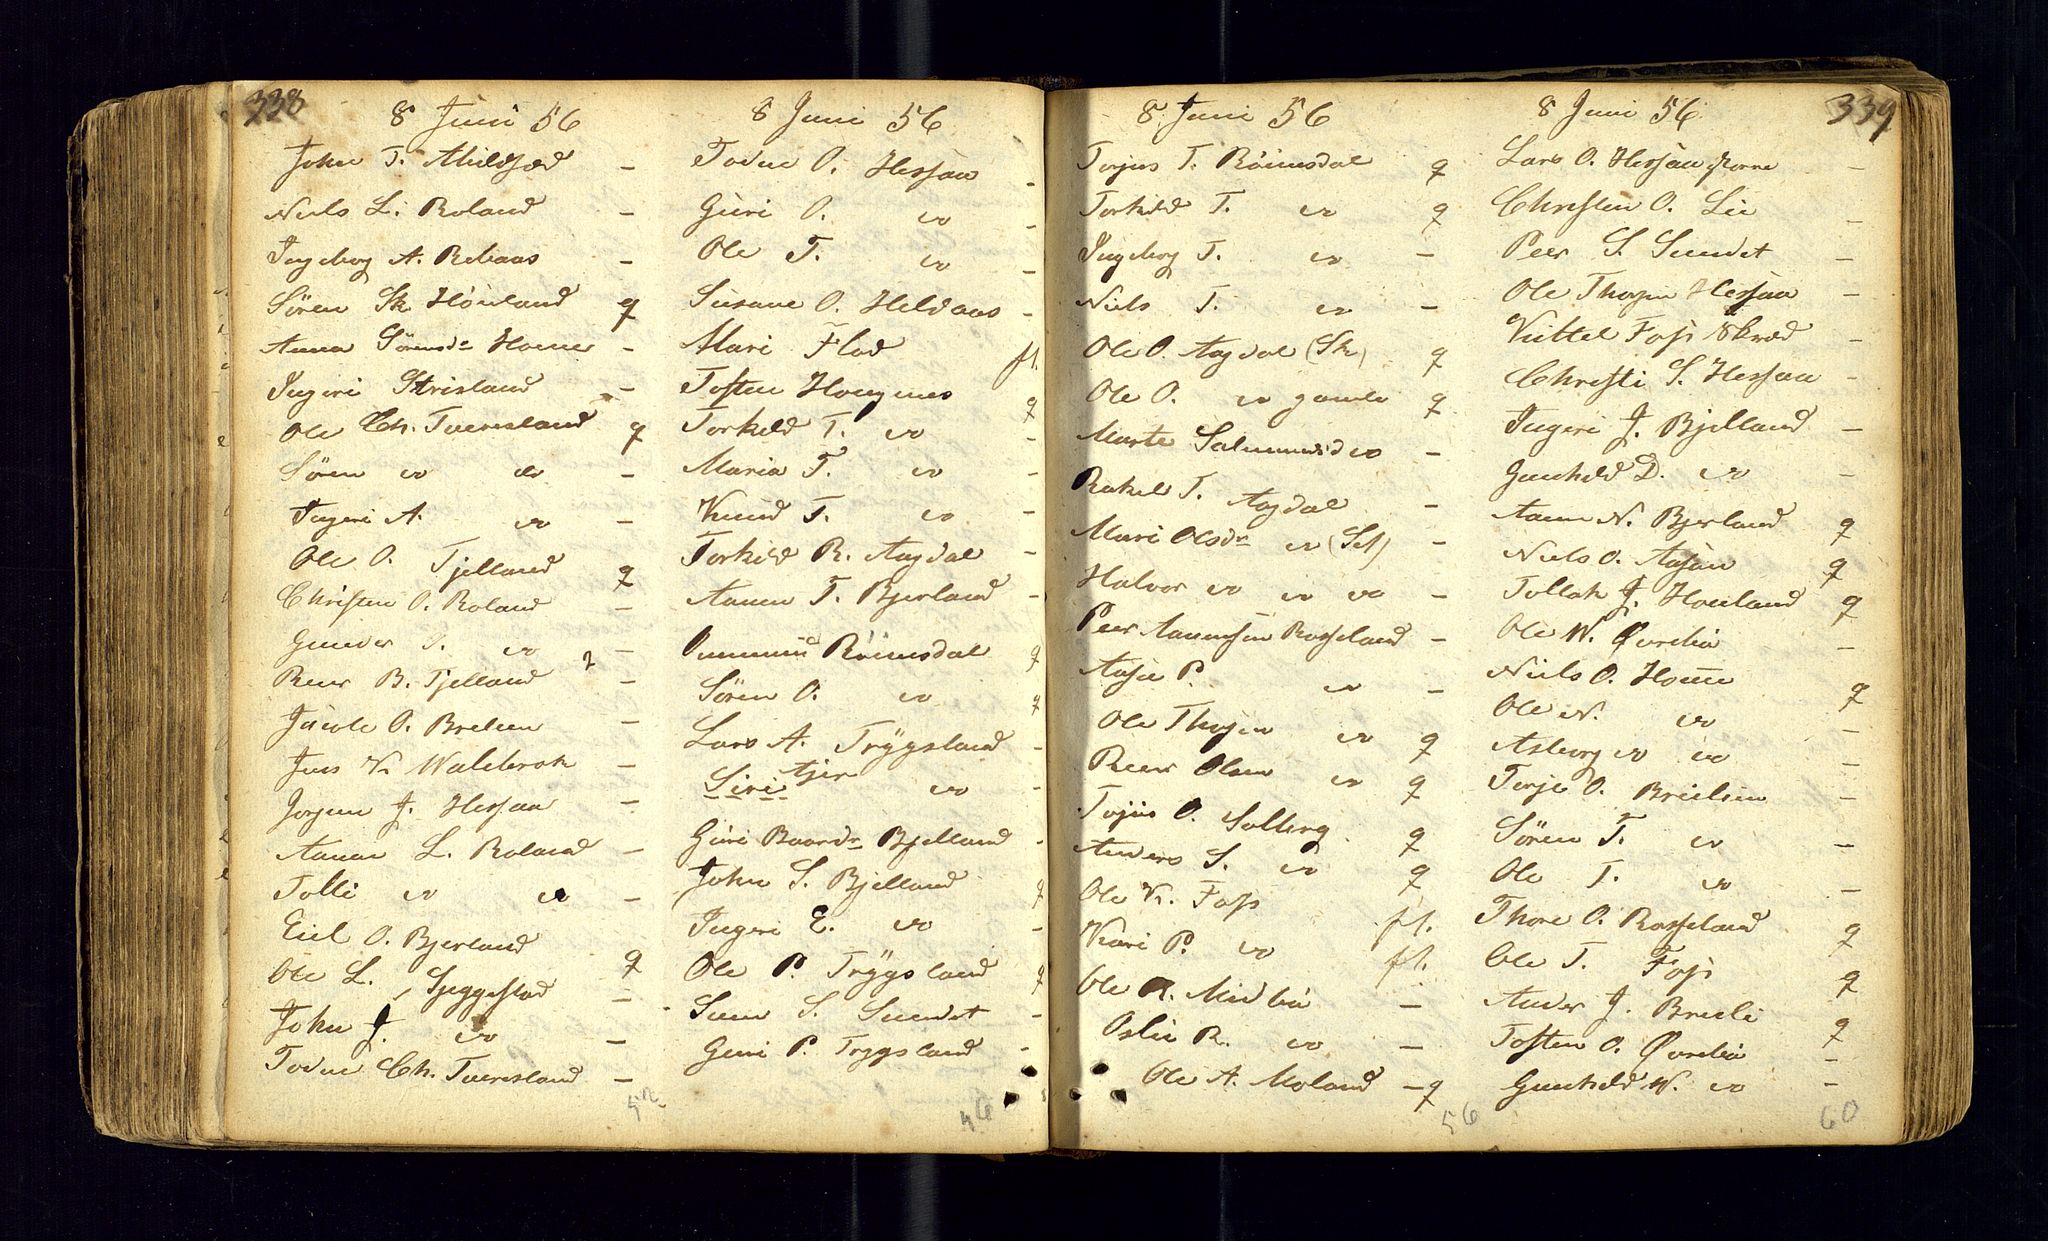 338
8 Juni 56
John T. Mildsød -
Niels L. Roland -
Ingeborg A. Rebaas -
Sören Sk Höuland g
Anna Sörensdr Homer -
Ingeri Strisland -
Ole Ch. Tveresland g
Sören vo do -
Ingeri A. vo -
Ole O. Tjelland g
Christen O. Roland -
Gunder T. vo -
Reer B. Tjelland 2 -
Jacob O. Breleen -
Jens K. Walebrok -
Jorgen J. Hessaa -
Aanen L. Roland -
Tolli vo vo -
Eiel O. Bjerland g
Ole L. Speggestad -
John J. vo -
Todne Ch. Tveresland -
8 Juni 56
Todne O. Hessaa -
Guri O. vo -
Ole T. vo -
Susane O. Heldaas -
Mari Flod fl.
Tosten Hougenes g
Torkeld T. vo -
Maria T. vo -
Knud T. vo -
Torkild R. Aagdal -
Aanen T. Bjerland -
Ommund Röinesdal g
Sören O. vo g
Lars A. Trÿgsland -
Siri Atjer vo -
Guri Baardr Bjelland -
John S. Bjelland g
Ingeri E. vo -
Ole P. Trÿgsland g
Sven S. Sundet -
Guri P. Trygsland -
46
8 Juni 56
Torjus T. Röinesdal g
Torkild T. vo g
Ingeborg T. vo -
Niels T. vo -
Ole O. Aagdal (Sk) g
Ole O. vo gamle g
Marte Salmunsd vo -
Rakel T. Aagdal -
Mari Olsdr vo (Sch) -
Halvor vo vo vo -
Peer Aanensen Rosseland -
Aase P. vo -
Ole Thorsen vo g
Reer Olsen vo g
Torjus O. Solberg g
Anders S. vo g
Ole K. Foss fl.
Kari P. vo fl.
Ole R. Midbö -
Oslie R. vo -
Ole A. Moland - g
56
339
8 Juni 56
Lars O. Hessaa større -
Christen O. Lie -
Peer S. Sundet -
Ole Thorsen Hessaa -
Kittel Foss Skræd -
Christi S. Hessaa -
Ingeri J. Bjelland -
Gunhild D. vo -
Aanen N. Bjerland g
Niels O. Aasen g
Tollak J. Houland g
Ole W. Øvrebö -
Niels O. Home g
Ole N. vo -
Asborg vo vo -
Terje O. Brelien -
Sören T. vo -
Ole T. vo -
Thore O. Rosseland g
Ole T. Foss g
Ander J. Breili g
Tosten O. Øvrebö -
Gunhild W. vo -
60